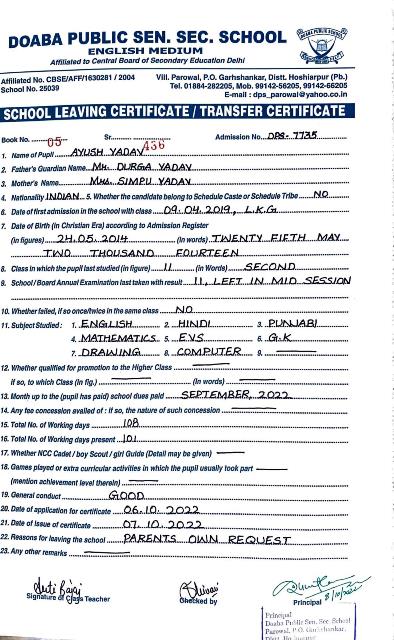 DOABA PUBLIC SEN. SEC. SCHOOL
ENGLISH MEDIUM
Affiliated to Central Board of Secondary Education Delhi
Affiliated No. CBSE/AFF/1630281 / 2004
School No. 25039
Vill. Parowal, P.O. Garhshankar, Distt. Hoshiarpur (Pb.)
Tel. 01884-282205, Mob. 99142-56205, 99142-66205
E-mail : dps_parowal@yahoo.co.in
SCHOOL LEAVING CERTIFICATE / TRANSFER CERTIFICATE
Book No. 05 Sr. 436 Admission No. DPS-7735
1. Name of Pupil AYUSH YADAV
2. Father's Guardian Name MR. DURGA YADAV
3. Mother's Name MRS. SIMPU YADAV
4. Nationality INDIAN 5. Whether the candidate belong to Schedule Caste or Schedule Tribe NO
6. Date of first admission in the school with class 09.04.2019, L.K.G.
7. Date of Birth (in Christian Era) according to Admission Register
(In figures) 24.05.2014 (In words) TWENTY FIFTH MAY
TWO THOUSAND FOURTEEN
8. Class in which the pupil last studied (in figure) II (in Words) SECOND
9. School / Board Annual Examination last taken with result II, LEFT IN MID SESSION
10. Whether failed, if so once/twice in the same class NO
11. Subject Studied : 1. ENGLISH 2. HINDI 3. PUNJABI
4. MATHEMATICS 5. EVS 6. G.K
7. DRAWING 8. COMPUTER 9.
12. Whether qualified for promotion to the Higher Class
if so, to which Class (In fig.) (In words)
13. Month up to the (pupil has paid) school dues paid SEPTEMBER, 2022
14. Any fee concession availed of : if so, the nature of such concession
15. Total No. of Working days 108
16. Total No. of Working days present 101
17. Whether NCC Cadet / boy Scout / girl Guide (Detail may be given)
18. Games played or extra curricular activities in which the pupil usually took part
(mention achievement level therein)
19. General conduct GOOD
20. Date of application for certificate 06.10.2022
21. Date of issue of certificate 07.10.2022
22. Reasons for leaving the school PARENTS OWN REQUEST
23. Any other remarks
Signature of Class Teacher
Checked by
Principal
8/10/2022
Principal
Doaba Public Sen. Sec. School
Parowal, P.O. Garhshankar,